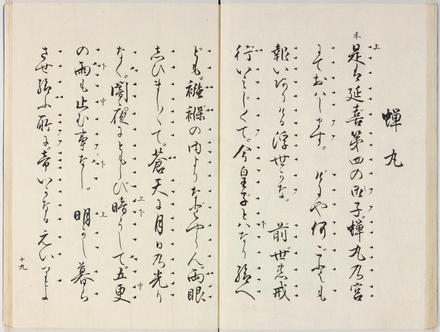 蝉丸
是は延喜第四の御子蝉丸乃宮
にておはします。げにや何事も
報いありける浮世かな。前世の戒
行いみじくて。今皇子とはなり給へ
ども。襁褓の内よりなどやらん。両眼
しひまし\/て。蒼天に月日の光り
なく。闇夜にともしび暗うして。五更
の雨も止む事なし。明かし暮らし
させ給ふ所に。帝いかなる
十九